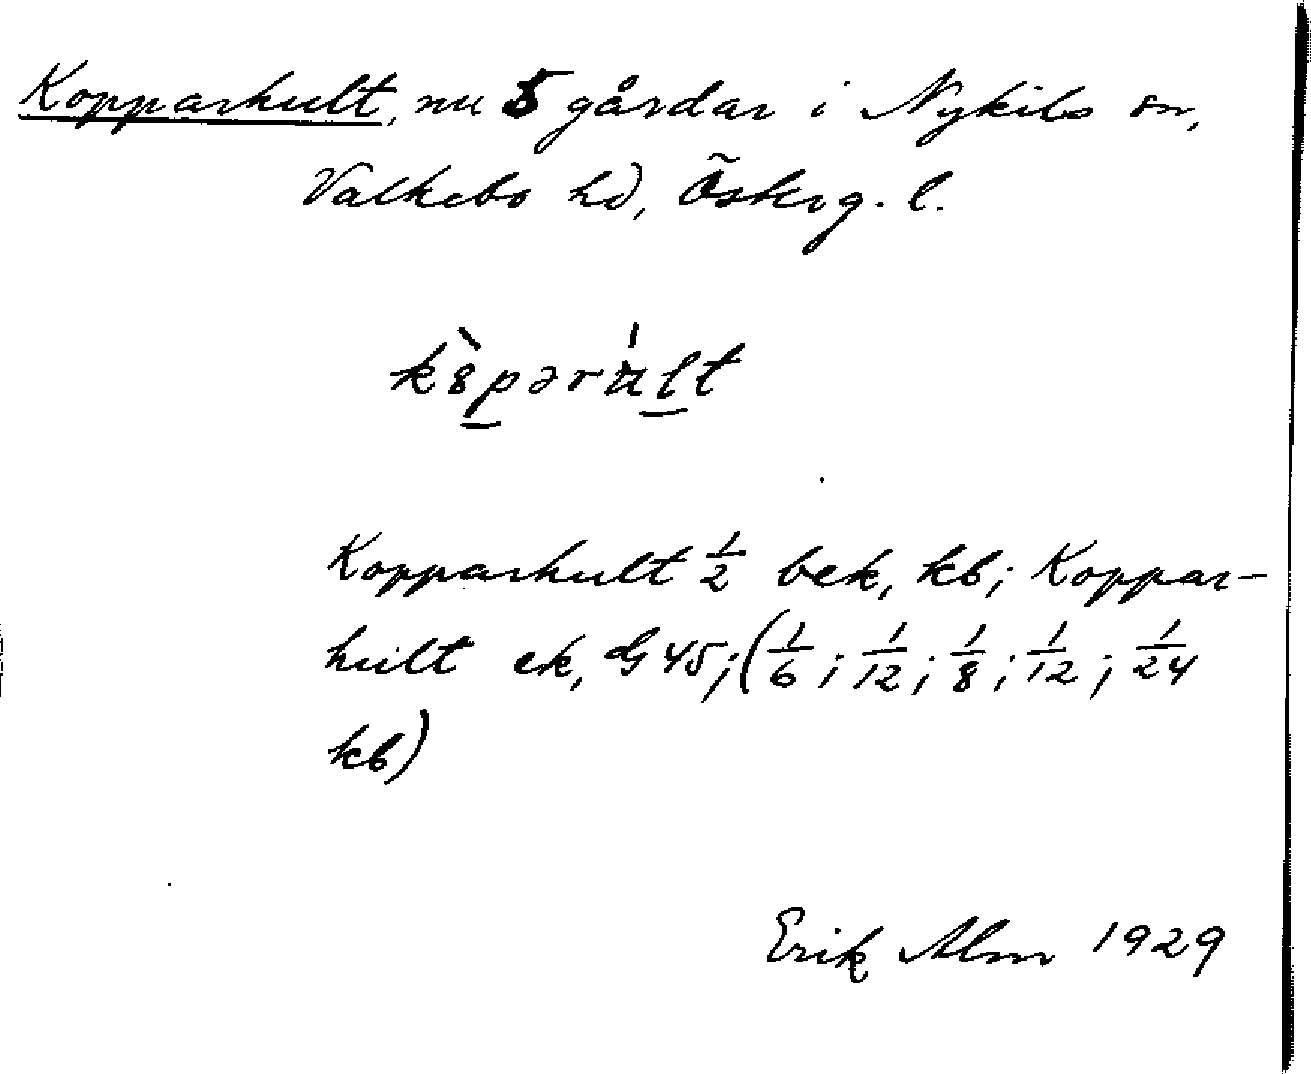 Kopparhult, nu 5 gårdar i Nykils sn,
Valkebo hd, Österg. l.
k8̀pərút
Kopparhult 1/2 bek, kb; Koppar-
hult ek, G 45; (1/6; 1/12; 1/8; 1/12; 1/24
kb)
Erik Alm 1929